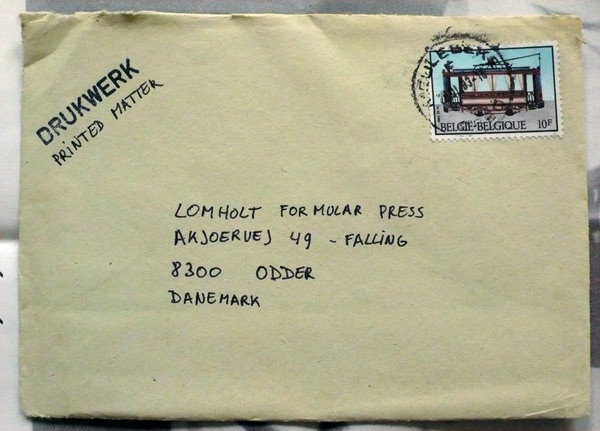 DRUKWERK
PRINTED MATTER
BELGIE-BELGIQUE 10F
LOMHOLT FORMULAR PRESS
AKJOERVEJ 49 - FALLING
8300 ODDER
DANEMARK